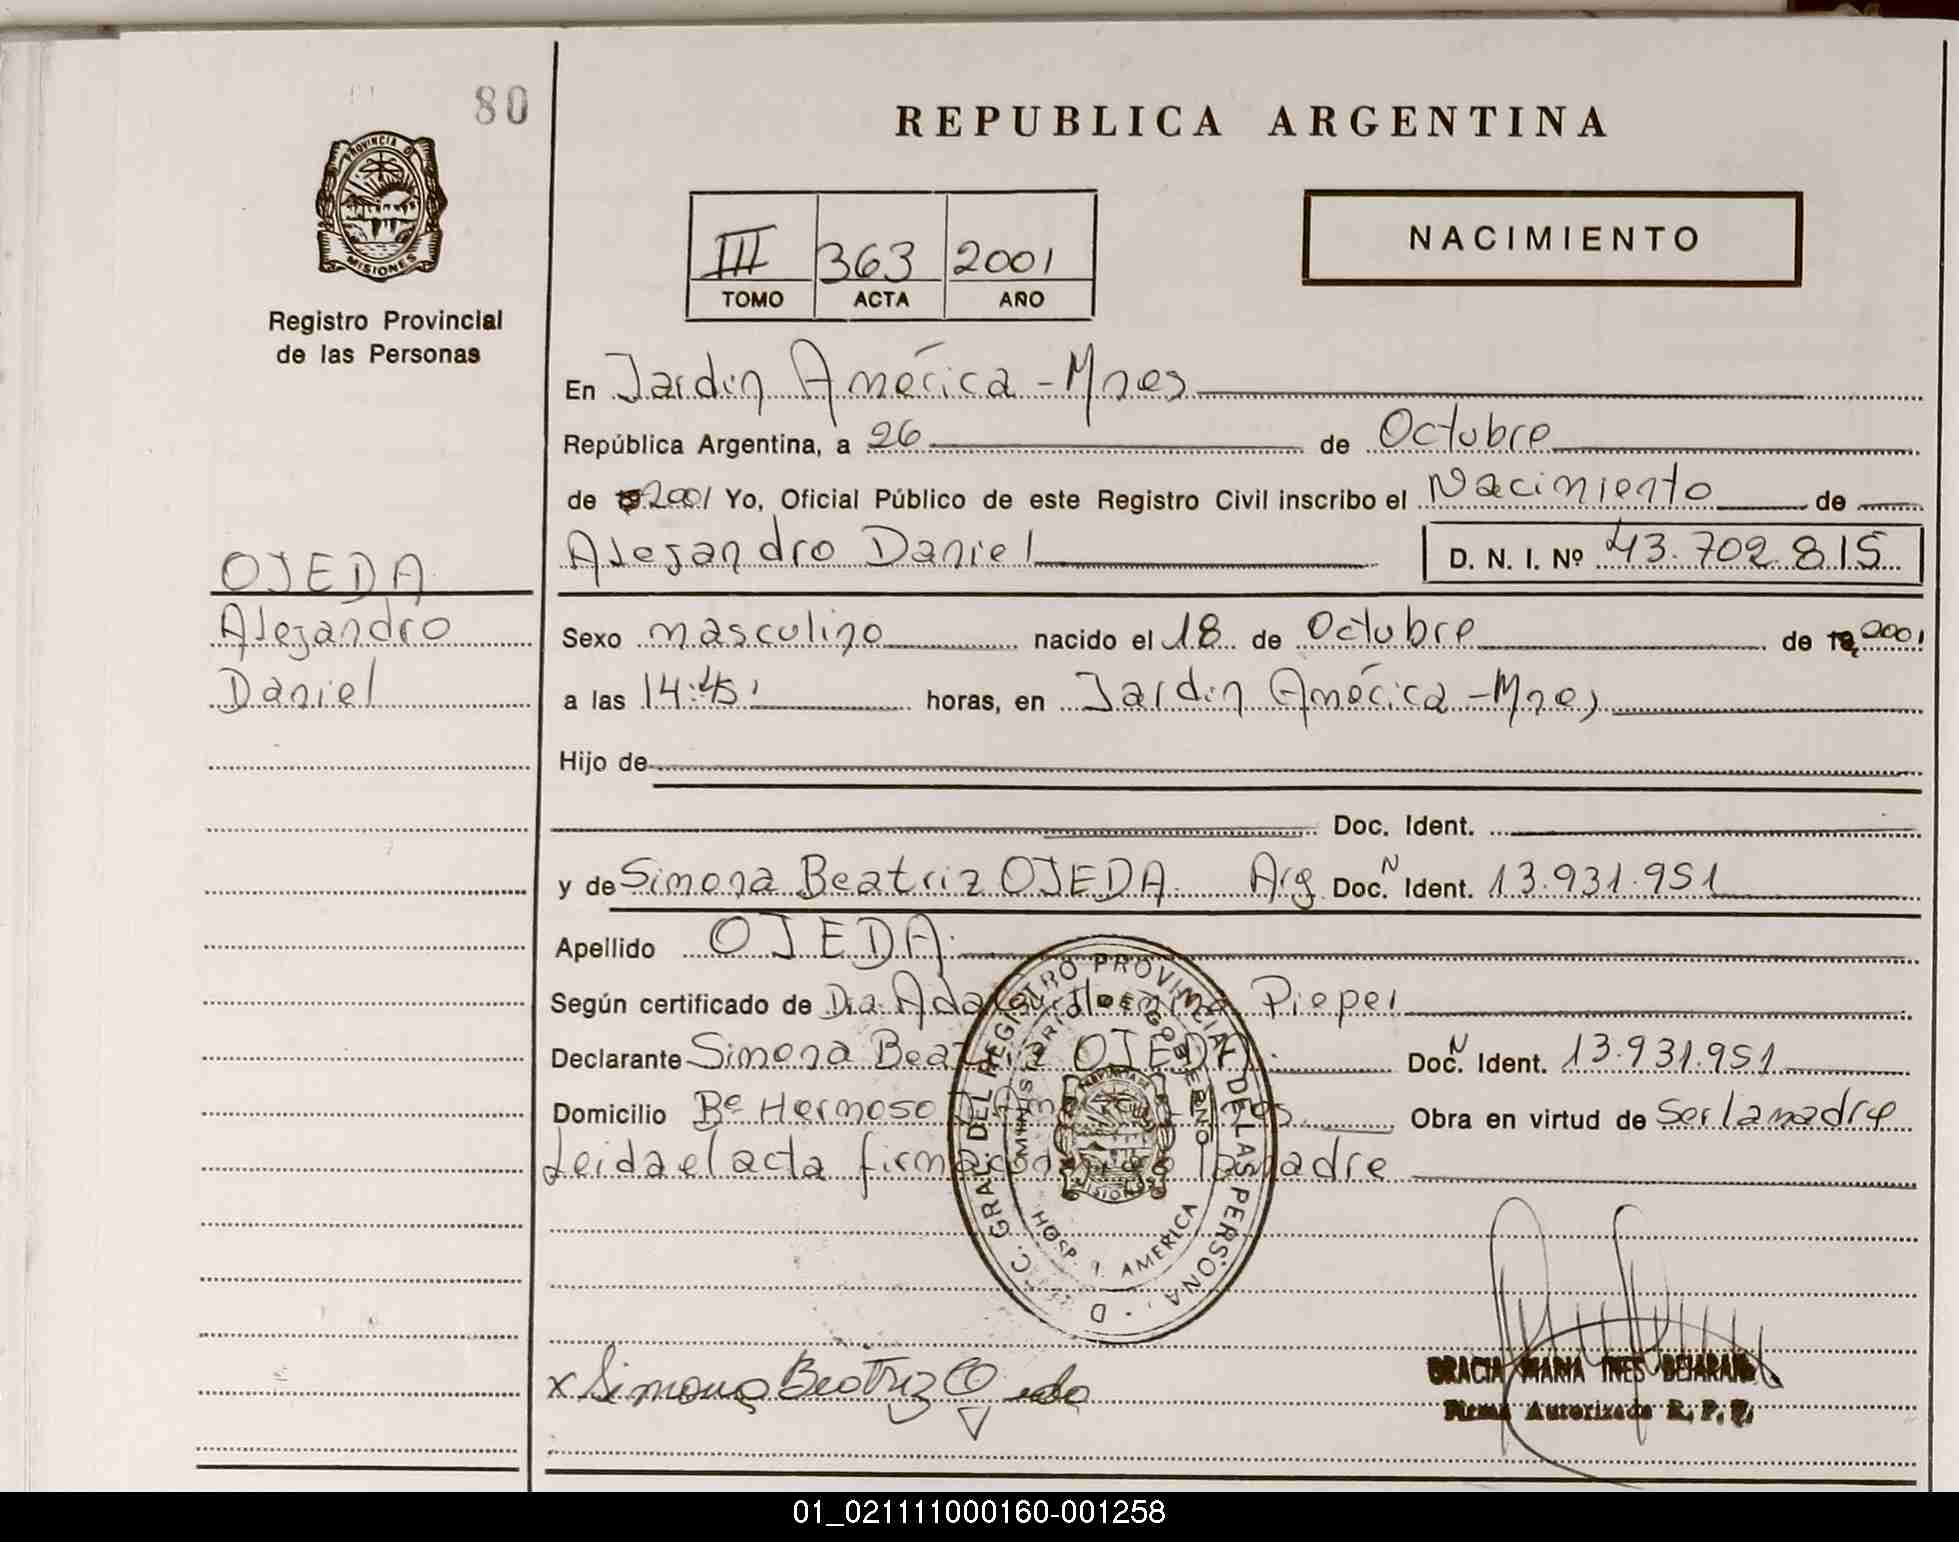 80
PROVINCIA DE
MISIONES
Registro Provincial
de las Personas
OJEDA
Alejandro
Daniel
REPUBLICA ARGENTINA
III 363 2001
TOMO ACTA AÑO
NACIMIENTO
En Jardin América - Mnes
República Argentina, a 26 de Octubre
de 2001 Yo, Oficial Público de este Registro Civil inscribo el Nacimiento de
Alejandro Daniel D. N. I. Nº 43.702.815
Sexo masculino nacido el 18 de Octubre de 19 2001
a las 14:45' horas, en Jardin América - Mnes
Hijo de
Doc. Ident.
y de Simona Beatriz OJEDA. Arg. Doc. N Ident. 13.931.951
Apellido OJEDA.
Según certificado de Dra. Pieper
Declarante Simona Beatriz OJEDA. Doc. N Ident. 13.931.951
Domicilio Bº Hermoso Obra en virtud de Ser la madre
Leida el acta firma madre
REGISTRO PROVINCIAL DE LAS PERSONAS
MINISTERIO DE GOBIERNO
MISIONES
HOSP. J. AMERICA
x Simona Beatriz Ojeda
GRACIA MARIA INES BEJARANO
Firma Autorizada R. P. P.
01_021111000160-001258